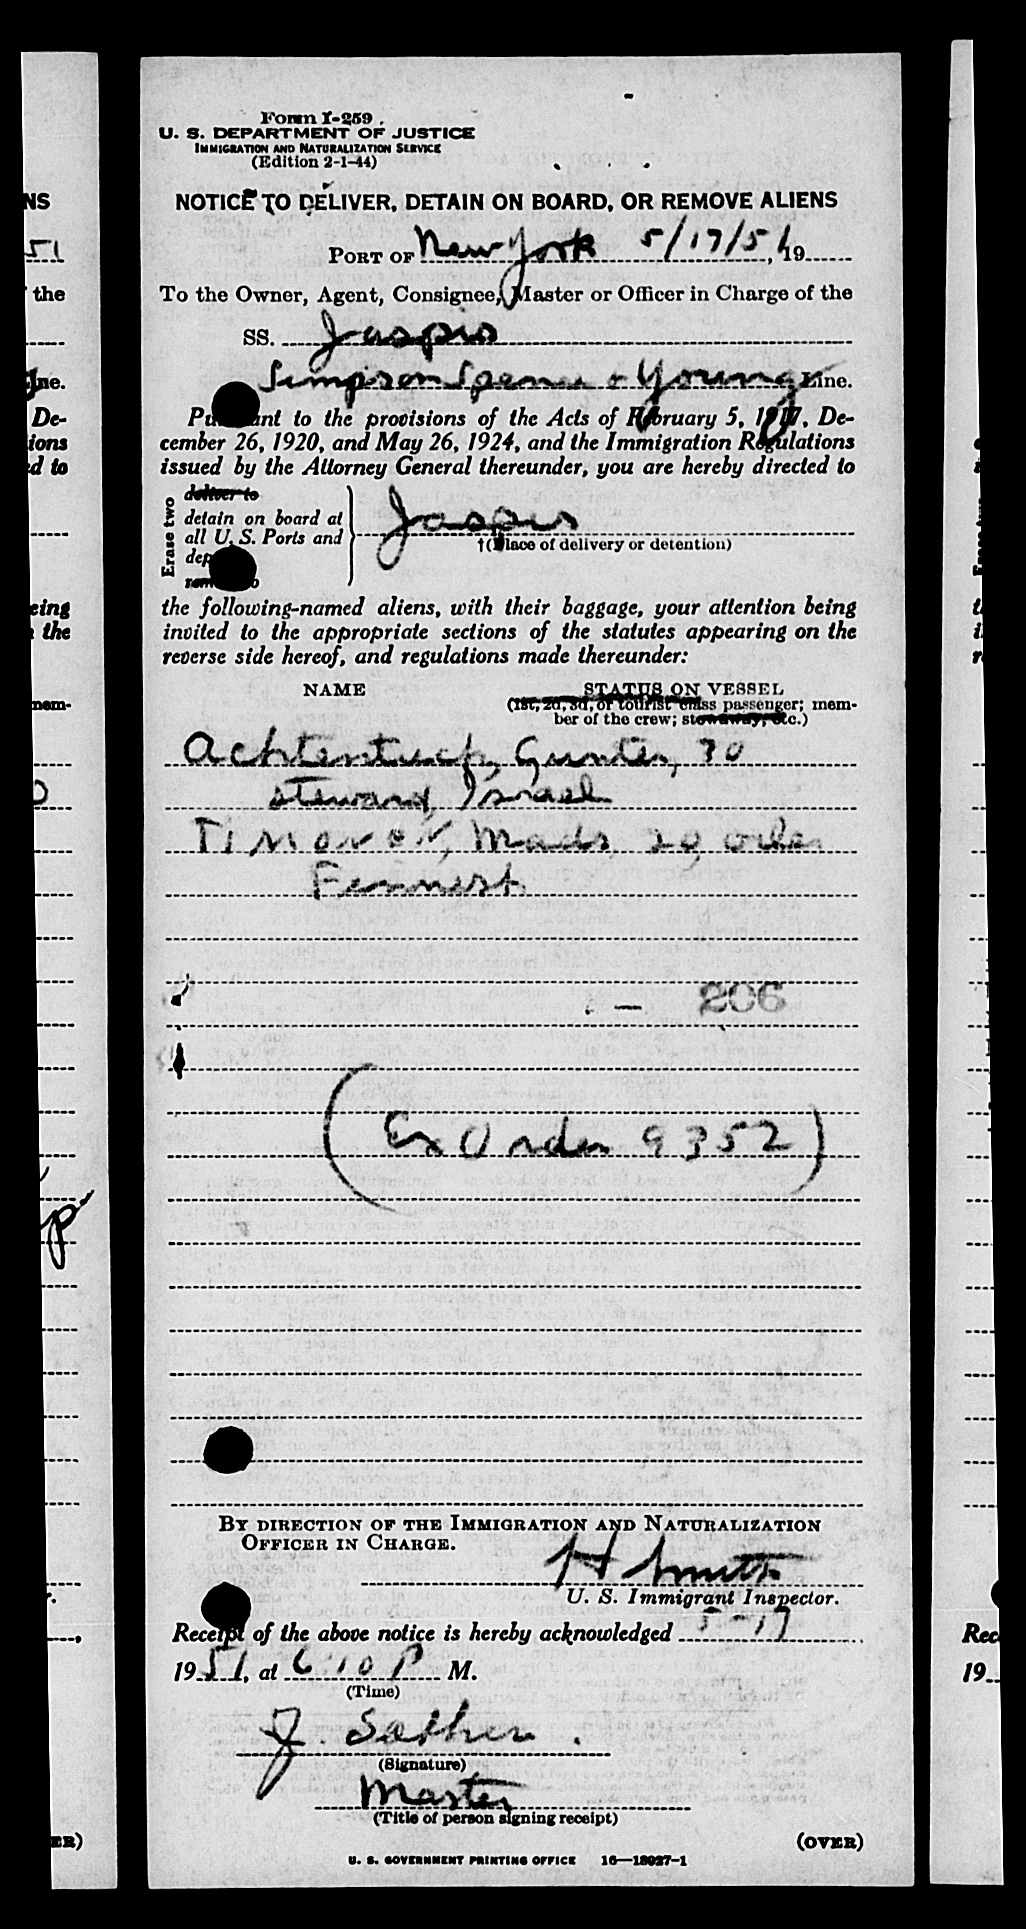 NS
51
the
ne.
De-
ions
d to
eing
the
mem-
ER)
Form I-259
U. S. DEPARTMENT OF JUSTICE
IMMIGRATION AND NATURALIZATION SERVICE
(Edition 2-1-44)
NOTICE TO DELIVER, DETAIN ON BOARD, OR REMOVE ALIENS
PORT OF New York 5/17/51, 19
To the Owner, Agent, Consignee, Master or Officer in Charge of the
SS. Jaspis
Simpson Spence & Young Line.
Pursuant to the provisions of the Acts of February 5, 1917, De-
cember 26, 1920, and May 26, 1924, and the Immigration Regulations
issued by the Attorney General thereunder, you are hereby directed to
Erase two
deliver to
detain on board at
all U. S. Ports and
dep
remove to
Jaspis
†(Place of delivery or detention)
the following-named aliens, with their baggage, your attention being
invited to the appropriate sections of the statutes appearing on the
reverse side hereof, and regulations made thereunder:
NAME STATUS ON VESSEL
(1st, 2d, 3d, or tourist class passenger; mem-
ber of the crew; stowaway, etc.)
Gunter, 30
steward, Israel
Mads, 29
206
(Ex Order 9352)
BY DIRECTION OF THE IMMIGRATION AND NATURALIZATION
OFFICER IN CHARGE.
H Smith
U. S. Immigrant Inspector.
Receipt of the above notice is hereby acknowledged 5-17
1951, at 6:10 P M.
(Time)
J.
(Signature)
Master
(Title of person signing receipt)
(OVER)
U. S. GOVERNMENT PRINTING OFFICE 16—18927-1
Rec
19